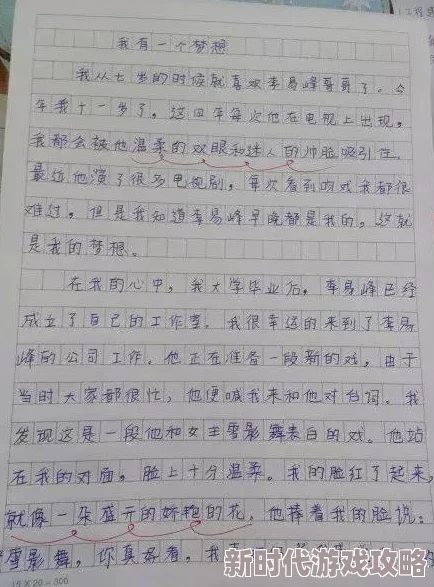 我有一个梦想
我从七岁的时候就喜欢李易峰哥哥了。今
年我十一岁了，这四年每次他在电视上出现，
我都会被他温柔的双眼和迷人的帅脸吸引住。
最近他演了很多电视剧，每次看到吻戏我都很
难过，但是我知道李易峰早晚都是我的，这就
是我的梦想。
在我的心中，我大学毕业后，李易峰已经
成立了自己的工作室。我很幸运的来到了李易
峰的公司工作。他正在准备一段新的戏，由于
当时大家都很忙，他便喊我来和他对台词。我
发现这是一段他和女主雪影舞表白的戏。他站
在我的对面，脸上十分温柔。我的脸红了起来，
就像一朵盛开的娇艳的花，他捧着我的脸说：
"雪影舞，你真好看。我
15×20=300
新时代游戏攻略